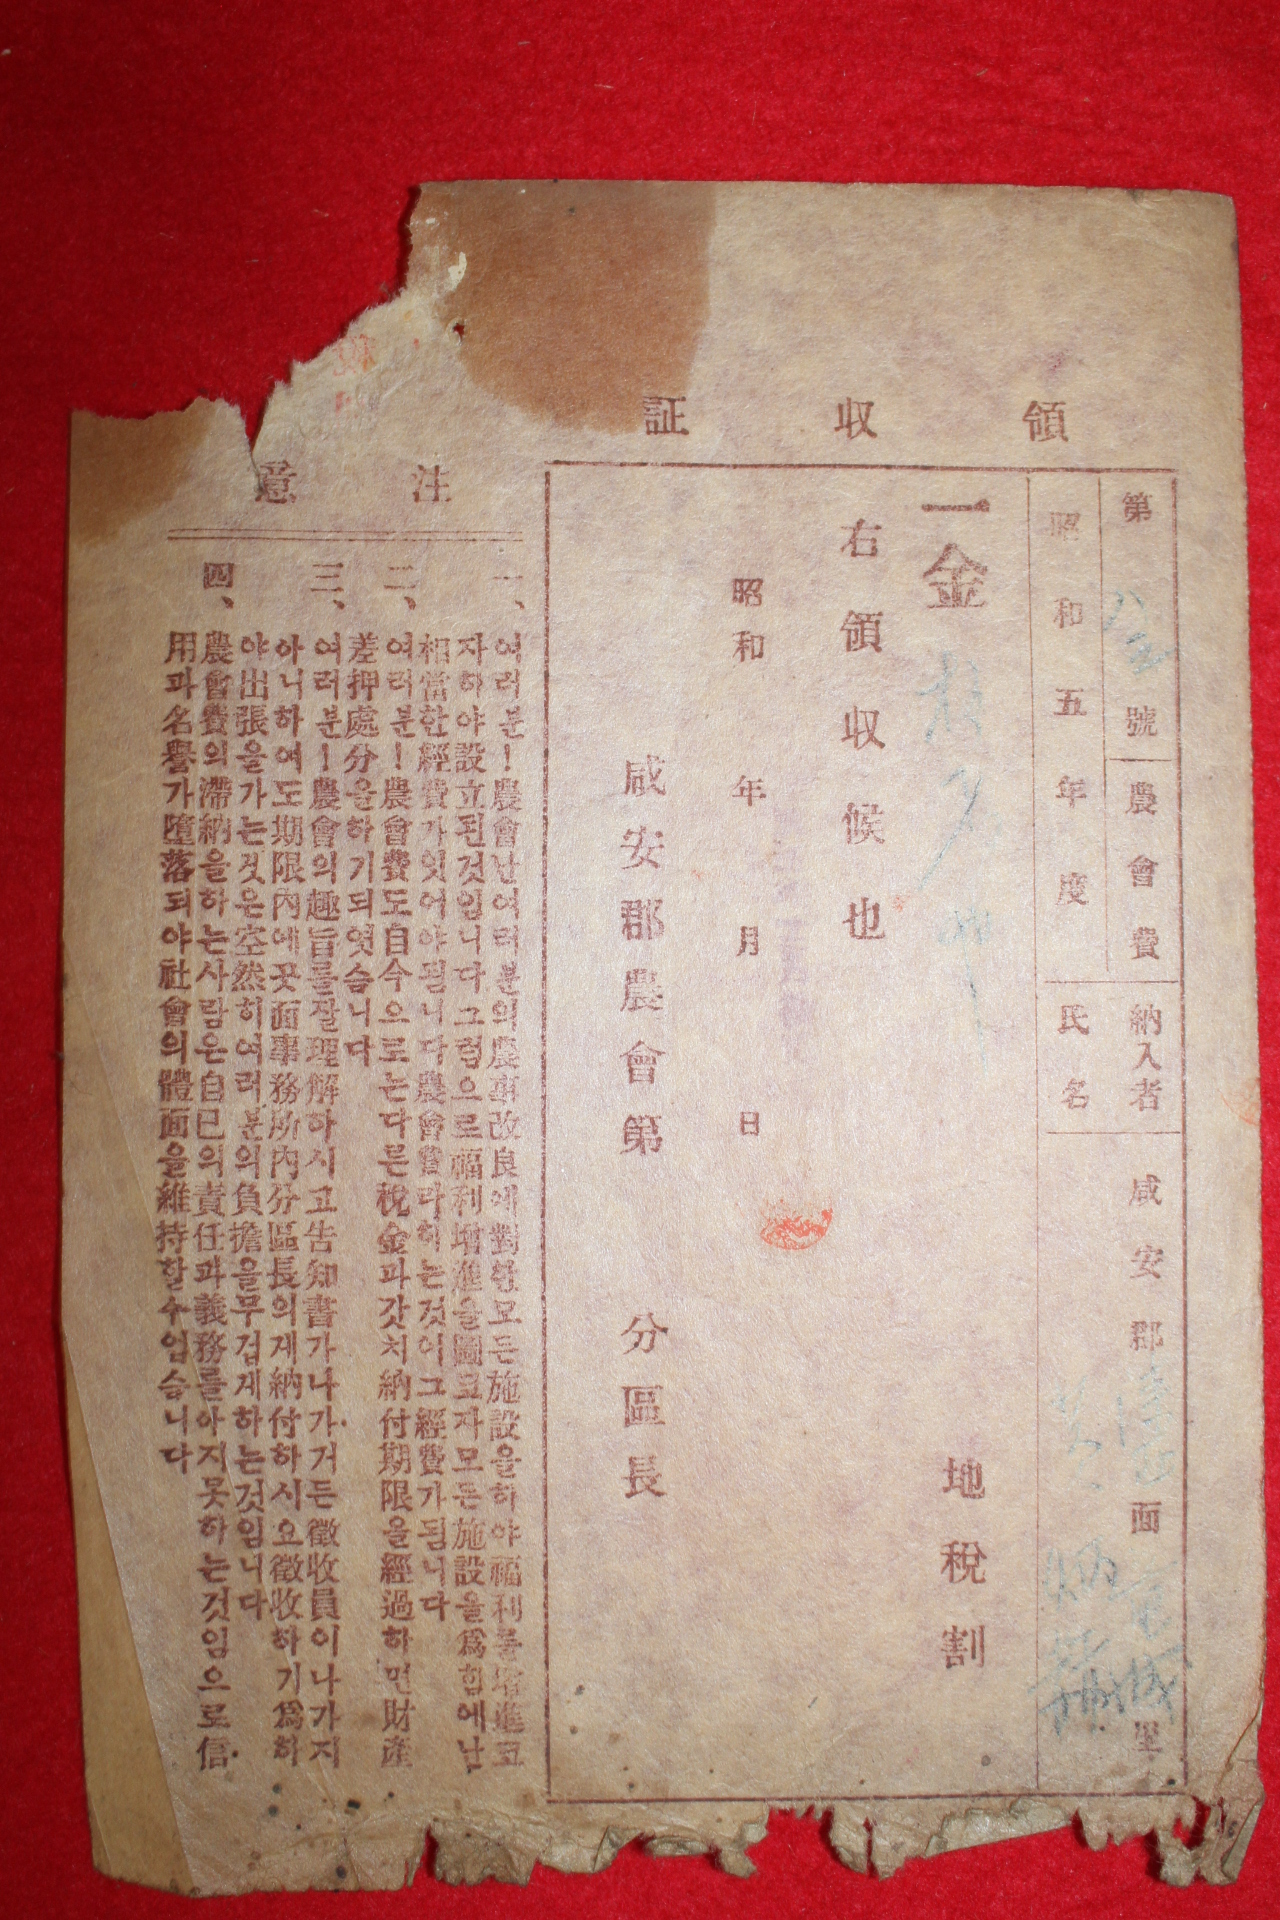 領收証
第 號
農會費
納入者
咸安郡 面 里
昭和五年度
氏名
一金
地稅割
右領收候也
昭和 年 月 日
咸安郡農會第 分區長
注意
一、여러분!農會난여러분의農事改良에對한모든施設을하야福利를增進코
자하야設立된것임니다그럼으로福利增進을圖코자모든施設을爲힘에난
相當한經費가잇어야됨니다農會費라하는것이그經費가됨니다
二、여러분!農會費도自今으로는다른稅金과갓치納付期限을經過하면財産
差押處分을하기되엿슴니다
三、여러분!農會의趣旨를잘理解하시고告知書가나가거든徵收員이나가지
아니하여도期限內에곳面事務所內分區長의게納付하시요徵收하기爲하
야出張을가는것은空然히여러분의負擔을무겁게하는것임니다
四、農會費의滯納을하는사람은自己의責任과義務를아지못하는것임으로信
用과名譽가墮落되야社會의體面을維持할수업슴니다